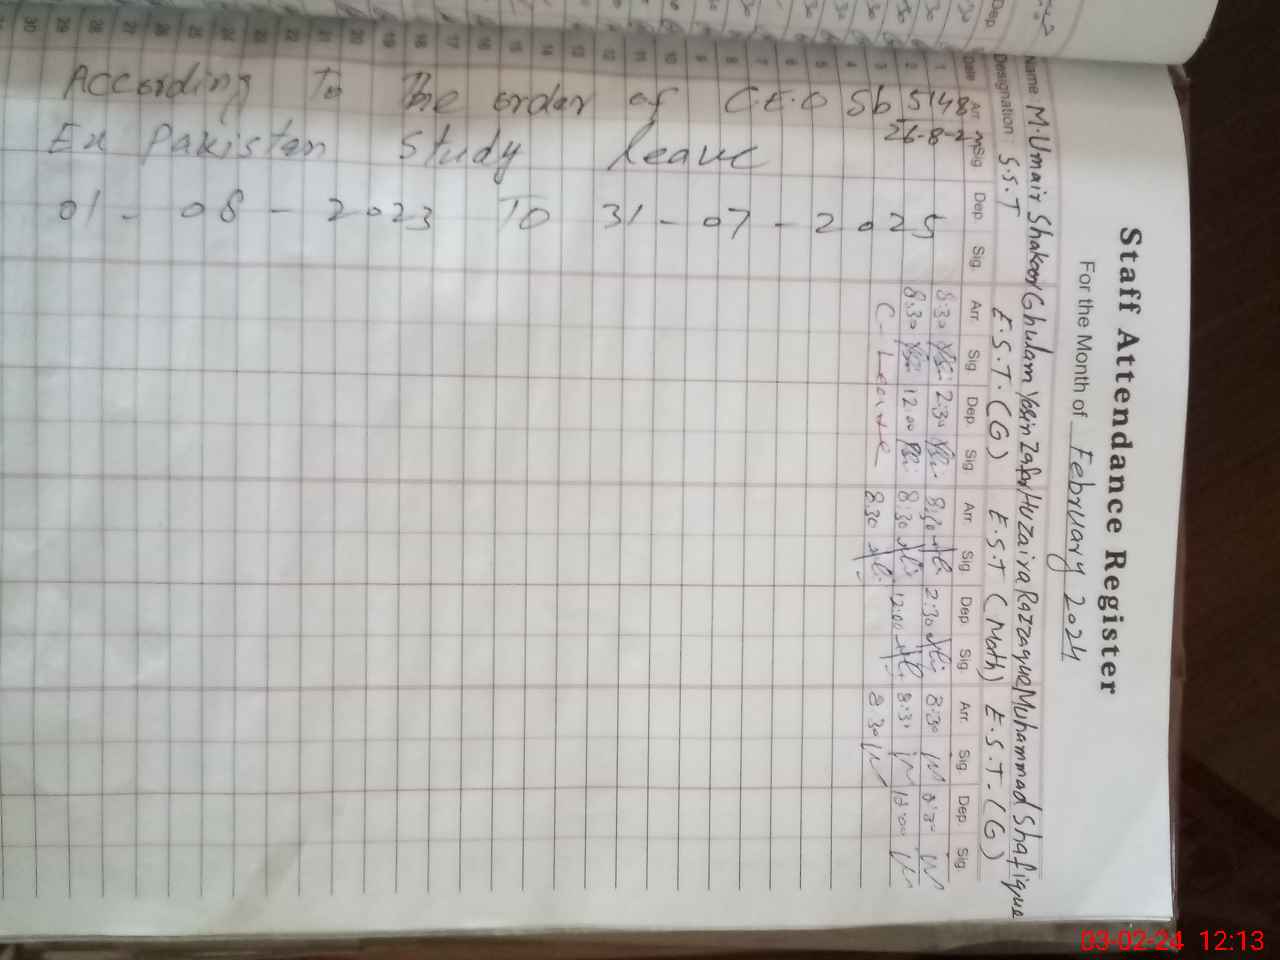 Staff Attendance Register
For the Month of February 2024
Name: M. Umair Shakoor Ghulam Yasin Zafar Huzaira Razzaque Muhammad Shafique
Designation: S.S.T E.S.T. (G) E.S.T (Math) E.S.T. (G)
Date Arr Sig Dep. Sig. Arr. Sig Dep. Sig Arr. Sig Dep Sig. Arr. Sig. Dep. Sig
1 8:30 2:30 8:30 2:30 8:30
2 8:30 12:00 8:30 12:00 8:31 12:00
3 C-Leave 8:30 8:30
4
5
6
7
8
9
10
11
12
13
14
15
16
17
18
19
20
21
22
23
24
25
26
27
28
29
30
According To The order of C.E.O Sb 5148
26-8-2
Ex Pakistan Study leave
01-08-2023 TO 31-07-2025
03-02-24 12:13